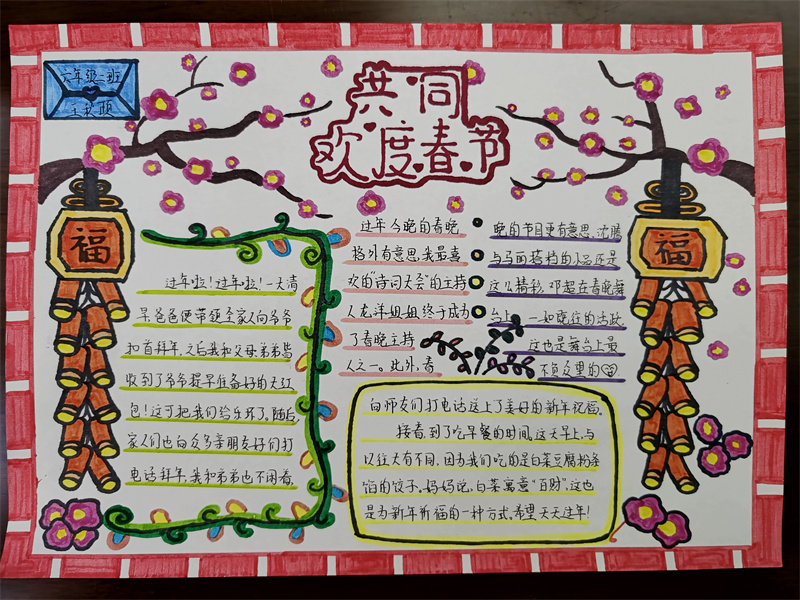 六年级二班
共同
欢度春节
福
福
过年啦!过年啦!一大清
早爸爸便带领全家人向爷爷
和首拜年,之后我和父母弟弟皆
收到了爷爷提早准备好的大红
包!这可把我们给乐坏了。随后,
家人们也向众多亲朋友好们打
电话拜年,我和弟弟也不闲着,
过年今晚的春晚
格外有意思,我最喜
欢的“诗词大会”的主持
人龙洋姐姐终于成为
了春晚主持
人之一。此外,春
晚的节目更有意思,沈腾
与马丽搭档的小品还是
这么精彩,邓超在春晚舞
台上,一如既往的活跃,
这也是舞台上最
不负众望的
向师友们打电话送上了美好的新年祝福。
接着,到了吃早餐的时间,这天早上,与
以往大有不同,因为我们吃的是白菜豆腐粉条
馅的饺子。妈妈说,白菜寓意“百财”,这也
是为新年祈福的一种方式,希望天天过年!